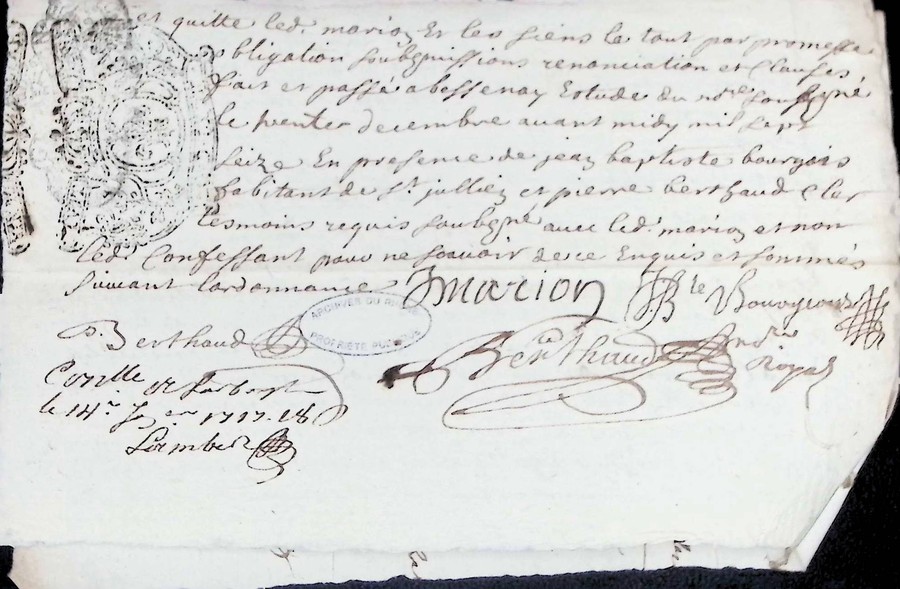 et quitte led. marion Et les siens le tout par promesse
obligation soubzmissions renonciation et clauses
fait et passé a bessenay Estude du nore soubsigné
le vente decembre avant midy mil sept
seize En presence de jean baptiste bourgois
habitant de st jullien et pierre berthaud clerc
tesmoins requis soubzigné avec led. marion et non
led. Confessant pour ne scavoir de ce Enquis et sommés
suivant Lordonnance
Jmarion JBte Bourgeois
P. Berthaud
Berthaud nore Royal
ARCHIVES DU RHÔNE
PROPRIÉTÉ PUBLIQUE
Conille
le 14e 1717
Lambert